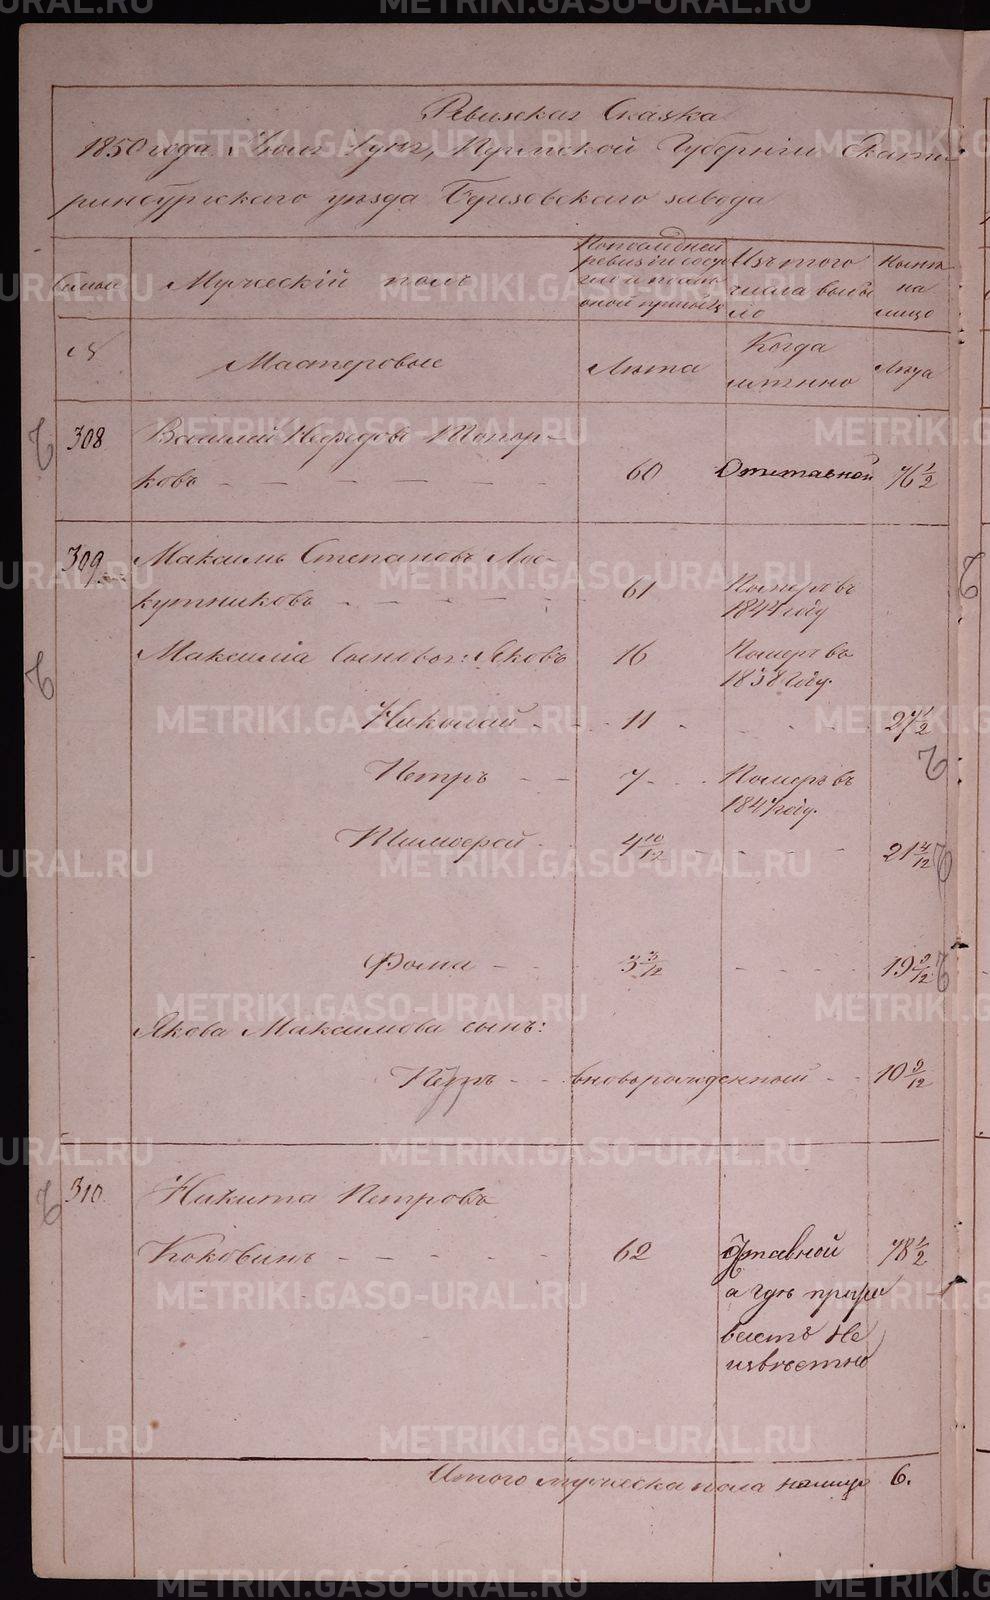 Ревизская Сказка
1850 года Июля дня, Пермской Губерніи Екате-
ринбургскаго уѣзда Березовскаго завода
Семьи
Мужескій полъ
По последней
ревизіи состо
Изъ того
числа выбы
ло
Ныне
на
лицо
№
Мастеровые
Лѣта
Когда
имянно
Лѣта
308
Василій Нефедовъ Топор-
ковъ 60 Отставной 76 1/2
309
Максимъ Степановъ Лос-
кутниковъ 61 Померъ въ
1844 году
Максима Сыновья: Яковъ 16 Померъ въ
1838 году.
Николай 11 27 1/2
Петръ 7 Померъ въ
1841 году.
Тимофей 4 10/12 21 4/12
Фома 3 3/12 19 9/12
Якова Максимова сынъ:
Петръ вновьрожденный 10 9/12
310
Никита Петровъ
Коковинъ 62 Отставной 78 1/2
а гдѣ прожи
ваетъ не
извѣстно
Итого мужеска пола налицо 6.
METRIKI.GASO-URAL.RU